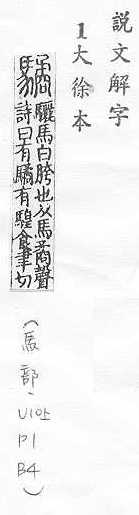 說文解字
1大徐本
驈驪馬白胯也从馬矞聲
詩曰有驈有騜食聿切
(馬部,
P1
B4)